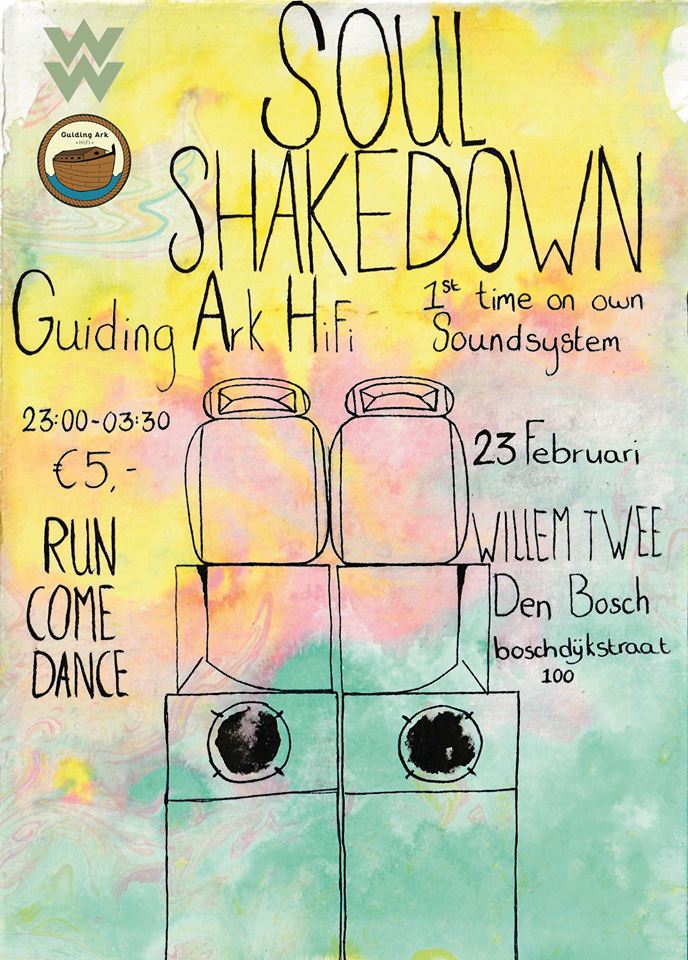 W
W
Guiding Ark
HiFi
SOUL
SHAKEDOWN
Guiding Ark HiFi
1st time on own
Soundsystem
23:00-03:30
€5,-
23 Februari
RUN
COME
DANCE
WILLEM TWEE
Den Bosch
boschdijkstraat
100